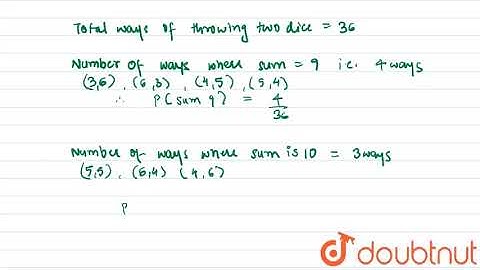 Total ways of throwing two dice = 36
Number of ways where sum = 9 i.e. 4 ways
(3,6) , (6,3) , (4,5) , (5,4)
∴ P(sum 9) = 4/36
Number of ways where sum is 10 = 3 ways
(5,5) , (6,4) (4,6)
P
doubtnut